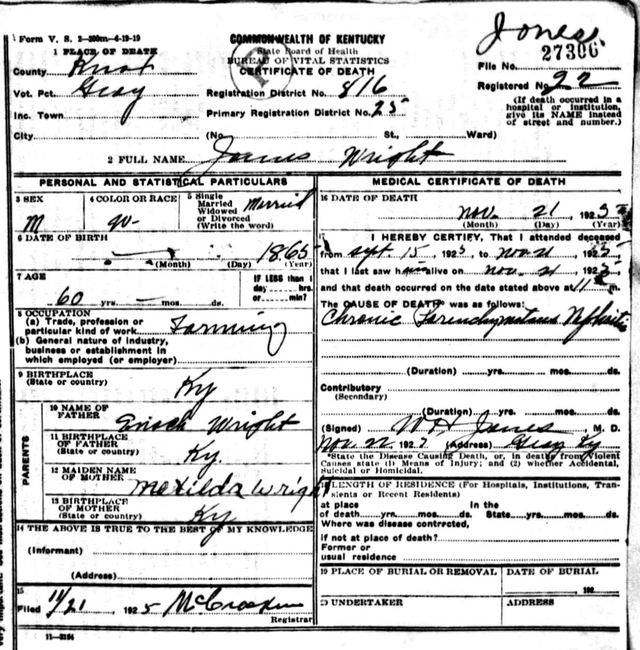 Form V. S. 2-300m-4-19-19
COMMONWEALTH OF KENTUCKY
State Board of Health
BUREAU OF VITAL STATISTICS
CERTIFICATE OF DEATH
Jones
27306
File No.
Registered No. 22
(If death occurred in a hospital or institution, give its NAME instead of street and number.)
1 PLACE OF DEATH
County Knox
Vot. Pct. Gray
Inc. Town
City
Registration District No. 816
Primary Registration District No. 25
(No. St., Ward)
2 FULL NAME James Wright
PERSONAL AND STATISTICAL PARTICULARS
3 SEX
M
4 COLOR OR RACE
5 Single
Married
Widowed
or Divorced
(Write the word)
Married
6 DATE OF BIRTH
1865
(Month) (Day) (Year)
7 AGE
60 yrs. — mos. ds.
IF LESS than 1
day hrs.
or min.?
8 OCCUPATION
(a) Trade, profession or
particular kind of work Farming
(b) General nature of industry,
business or establishment in
which employed (or employer)
9 BIRTHPLACE
(State or country)
Ky
PARENTS
10 NAME OF
FATHER
Enoch Wright
11 BIRTHPLACE
OF FATHER
(State or country)
Ky.
12 MAIDEN NAME
OF MOTHER
Matilda Wright
13 BIRTHPLACE
OF MOTHER
(State or country)
Ky
14 THE ABOVE IS TRUE TO THE BEST OF MY KNOWLEDGE
(Informant)
(Address)
15
Filed 11/21, 1925 McCracken
Registrar
11-3184
MEDICAL CERTIFICATE OF DEATH
16 DATE OF DEATH
Nov. 21, 1925
(Month) (Day) (Year)
17 I HEREBY CERTIFY, That I attended deceased
from Sept. 15, 192 , to Nov 21, 192
that I last saw h alive on Nov. 21, 192
and that death occurred on the date stated above at 11 m.
The CAUSE OF DEATH was as follows:
Chronic Parenchymatous Nephritis
(Duration) yrs. mos. ds.
Contributory
(Secondary)
(Duration) yrs. mos. ds.
(Signed) W H Jones, M. D.
Nov. 22 192 (Address) Gray Ky
*State the Disease Causing Death, or, in deaths from Violent
Causes state (1) Means of Injury; and (2) whether Accidental,
Suicidal or Homicidal.
LENGTH OF RESIDENCE (For Hospitals, Institutions, Transients or Recent Residents)
at place In the
of death yrs. mos. ds. State yrs. mos. ds.
Where was disease contrrcted,
if not at place of death?
Former or
usual residence
19 PLACE OF BURIAL OR REMOVAL
DATE OF BURIAL
192
UNDERTAKER
ADDRESS